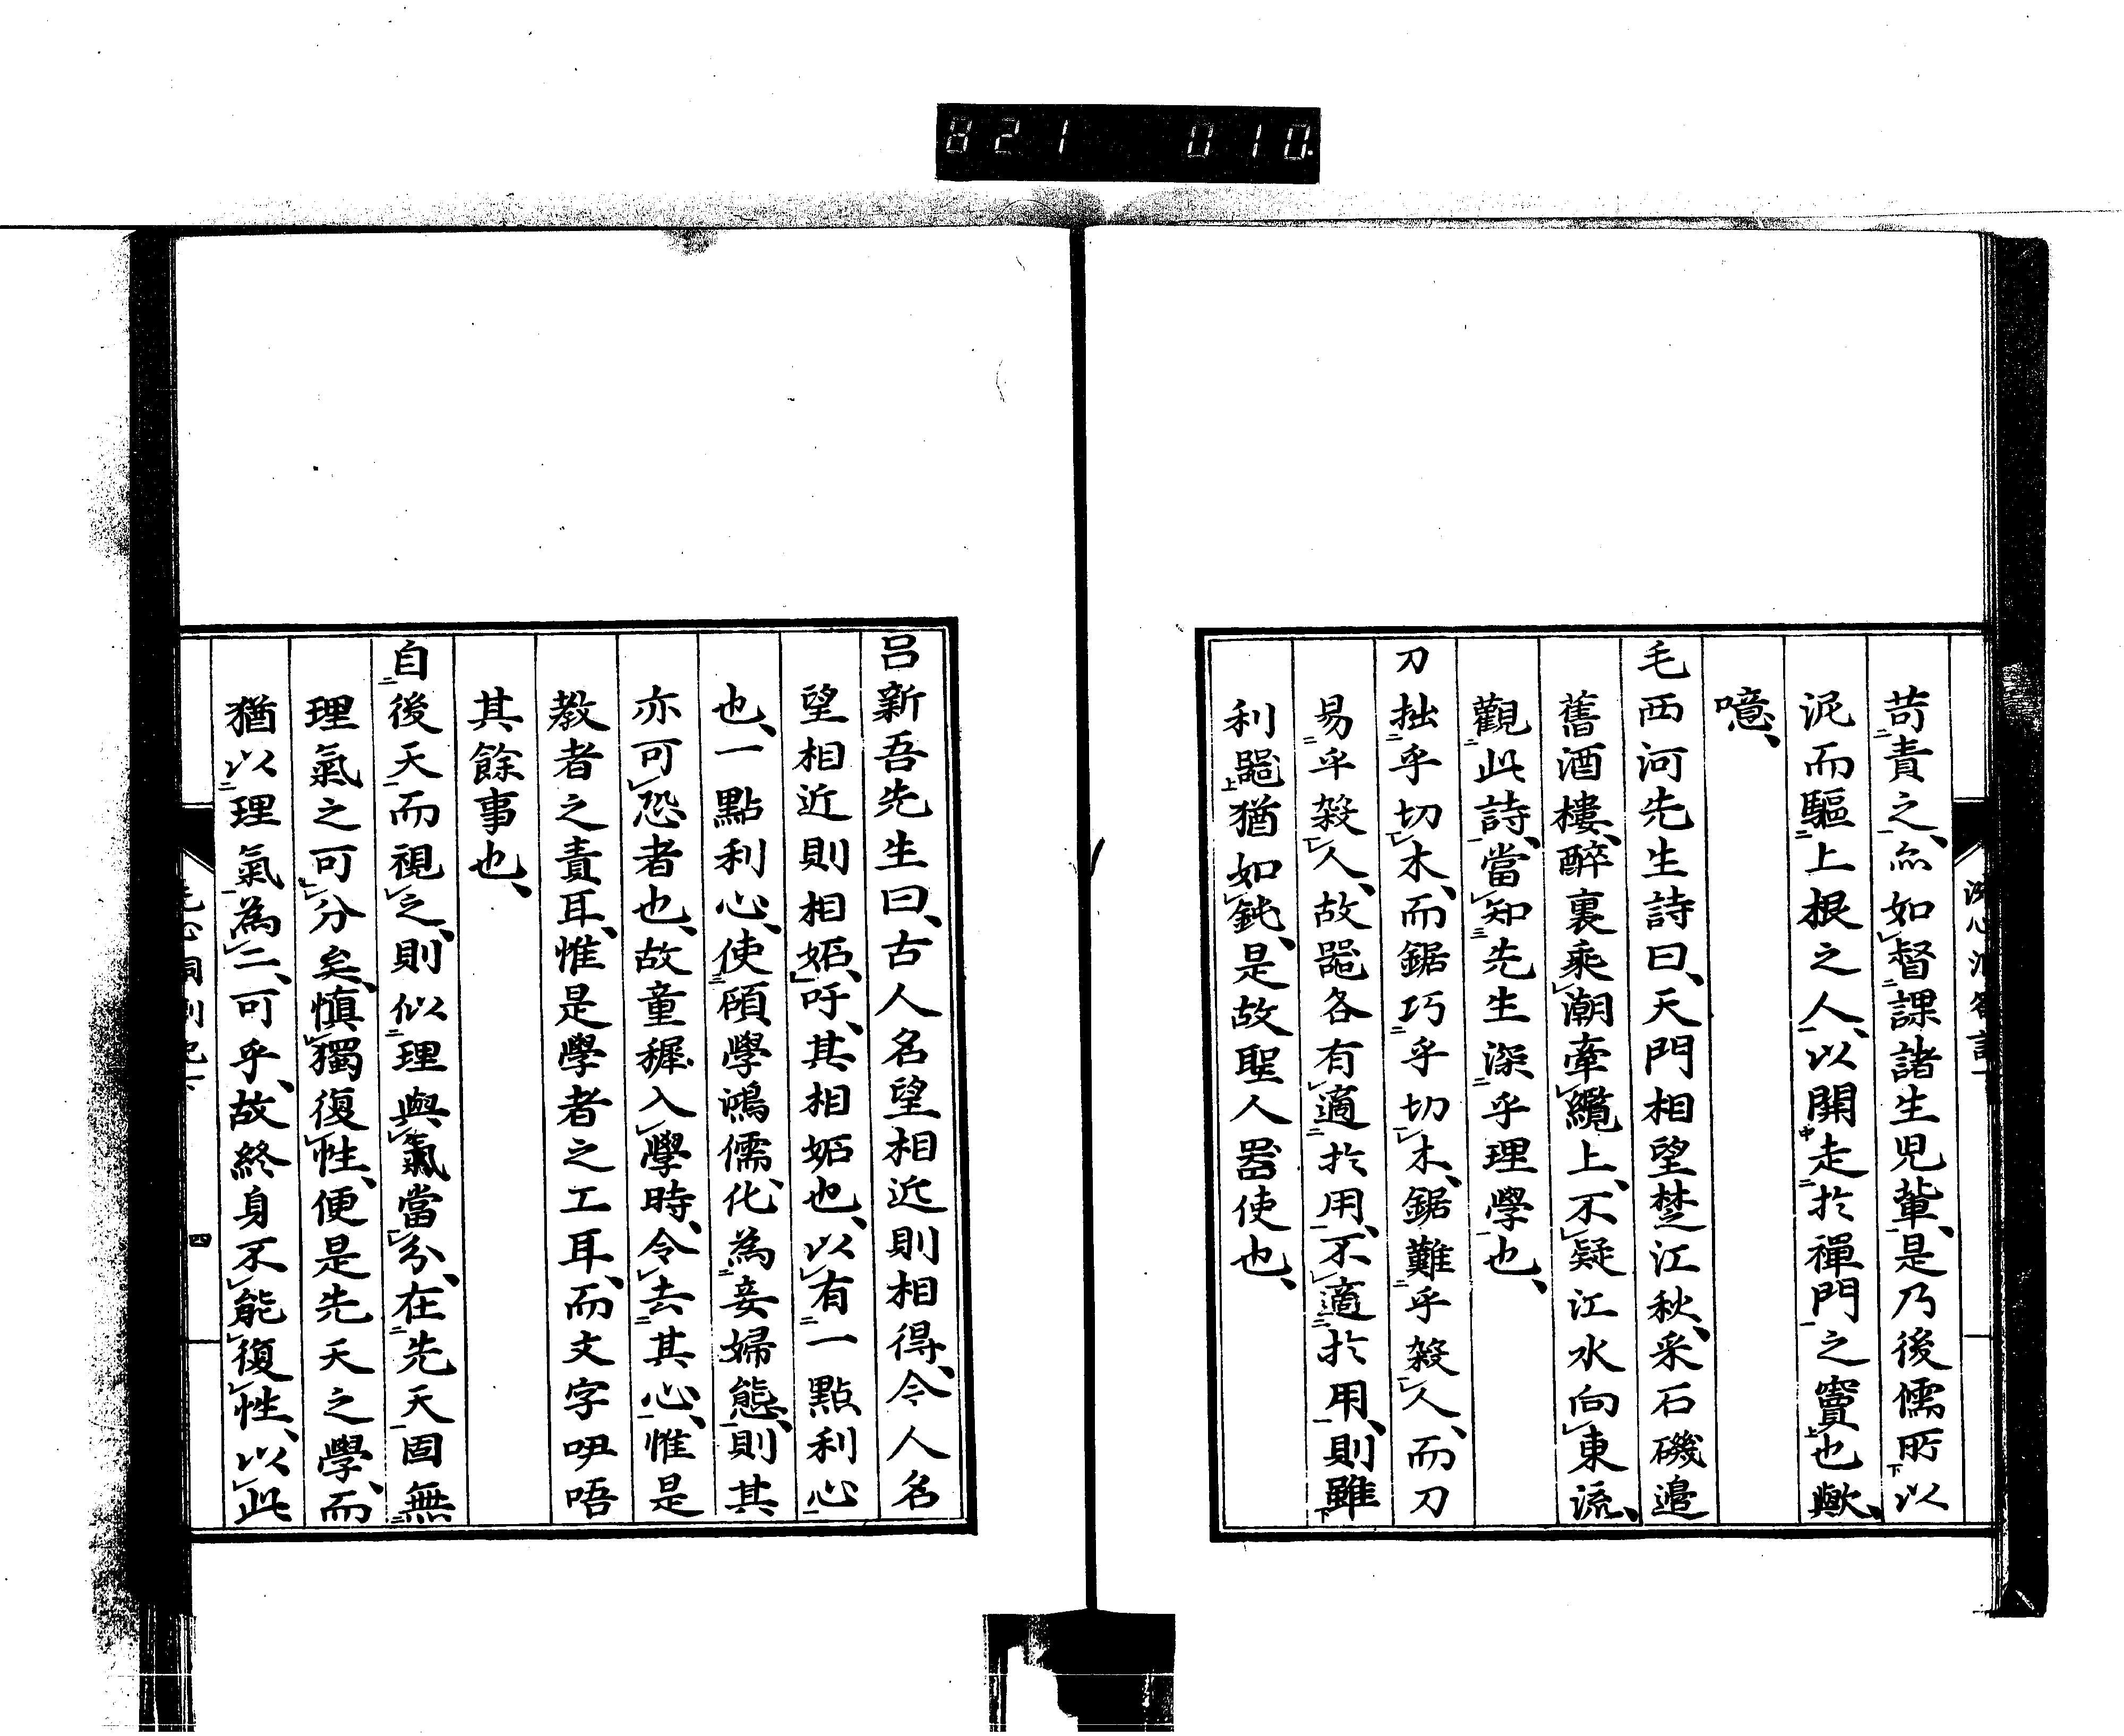 821 010.
苛責之、亦如督課諸生児輩、是乃後儒所以
泥而驅上根之人、以開走於禪門之竇也歟、
噫、
毛西河先生詩曰、天門相望楚江秋、采石磯邉
舊酒樓、醉裏乘潮牽纜上、不疑江水向東流、
觀此詩、當知先生深乎理學也、
刀拙乎切木、而鋸巧乎切木、鋸難乎殺人、而刀
易乎殺人、故噐各有適於用、不適於用、則雖
利噐猶如鈍、是故聖人噐使也、
呂新吾先生曰、古人名望相近則相得、今人名
望相近則相妬、吁、其相妬也、以有一點利心
也、一點利心、使碩學鴻儒、化為妾婦態、則其
亦可恐者也、故童穉入學時、令去其心、惟是
教者之責耳、惟是學者之工耳、而文字吚唔
其餘事也、
自後天而視之、則似理與氣當分、在先天固無
理氣之可分矣、慎獨復性、便是先天之學、而
猶以理氣為二、可乎、故終身不能復性、以此
四